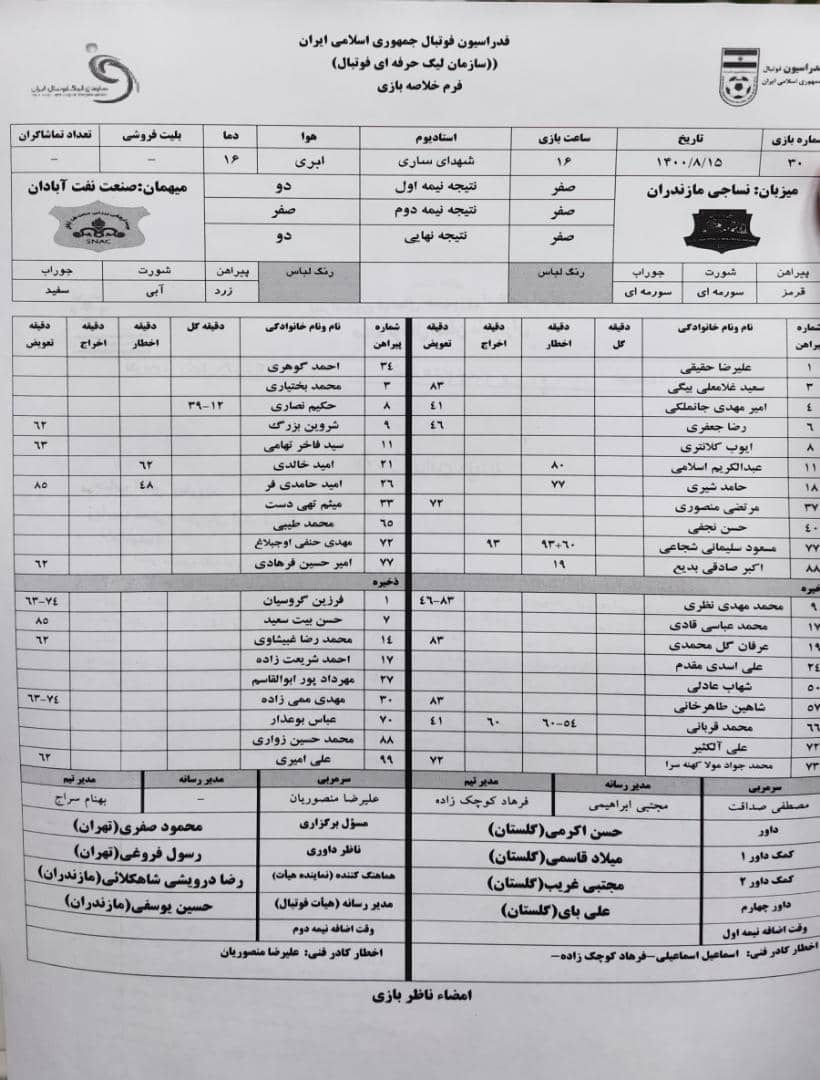 فدراسیون فوتبال جمهوری اسلامی ایران
((سازمان لیگ حرفه ای فوتبال)
فرم خلاصه بازی
فدراسیون فوتبال
جمهوری اسلامی ایران
سازمان لیگ فوتبال ایران
شماره بازی تاریخ ساعت بازی استادیوم هوا دما بلیت فروشی تعداد تماشاگران
۳۰ ۱۴۰۰/۸/۱۵ ۱۶ شهدای ساری ابری ۱۶ – –
میزبان: نساجی مازندران صفر نتیجه نیمه اول دو میهمان: صنعت نفت آبادان
صفر نتیجه نیمه دوم صفر
صفر نتیجه نهایی دو
SNAC
پیراهن شورت جوراب رنگ لباس رنگ لباس پیراهن شورت جوراب
قرمز سورمه ای سورمه ای زرد آبی سفید
شماره پیراهن نام ونام خانوادگی دقیقه گل دقیقه اخطار دقیقه اخراج دقیقه تعویض شماره پیراهن نام ونام خانوادگی دقیقه گل دقیقه اخطار دقیقه اخراج دقیقه تعویض
۱ علیرضا حقیقی ۳۴ احمد گوهری
۳ سعید غلامعلی بیگی ۸۳ ۳ محمد بختیاری
۴ امیر مهدی جانملکی ۴۱ ۸ حکیم نصاری ۳۹-۱۲
۶ رضا جعفری ۴۶ ۹ شروین بزرگ ۶۲
۸ ایوب کلانتری ۱۱ سید فاخر تهامی ۶۳
۱۱ عبدالکریم اسلامی ۸۰ ۲۱ امید خالدی ۶۲
۱۸ حامد شیری ۷۷ ۲۶ امید حامدی فر ۴۸ ۸۵
۳۷ مرتضی منصوری ۷۲ ۳۳ میثم تهی دست
۴۰ حسن نجفی ۶۵ محمد طیبی
۷۷ مسعود سلیمانی شجاعی ۹۳+۶۰ ۹۳ ۷۲ مهدی حنفی اوجبلاغ
۸۸ اکبر صادقی بدیع ۱۹ ۷۷ امیر حسین فرهادی ۶۲
ذخیره ذخیره
۹ محمد مهدی نظری ۴۶-۸۳ ۱ فرزین گروسیان ۶۳-۷۴
۱۷ محمد عباسی قادی ۷ حسن بیت سعید ۸۵
۱۹ عرفان گل محمدی ۸۳ ۱۴ محمد رضا غبیشاوی ۶۲
۲۴ علی اسدی مقدم ۱۷ احمد شریعت زاده
۵۰ شهاب عادلی ۲۷ مهرداد پور ابوالقاسم
۵۷ شاهین طاهرخانی ۸۳ ۳۰ مهدی ممی زاده ۶۳-۷۴
۶۶ محمد قربانی ۶۰-۵۴ ۶۰ ۴۱ ۷۰ عباس بوعذار
۷۲ علی آلکثیر ۸۸ محمد حسین زواری
۷۳ محمد جواد مولا کهنه سرا ۷۲ ۹۹ علی امیری ۶۲
سرمربی مدیر رسانه مدیر تیم سرمربی مدیر رسانه مدیر تیم
مصطفی صداقت مجتبی ابراهیمی فرهاد کوچک زاده علیرضا منصوریان – بهنام سراج
داور حسن اکرمی(گلستان) مسؤل برگزاری محمود صفری(تهران)
کمک داور ۱ میلاد قاسمی(گلستان) ناظر داوری رسول فروغی(تهران)
کمک داور ۲ مجتبی غریب(گلستان) هماهنگ کننده (نماینده هیات) رضا درویشی شاهکلائی(مازندران)
داور چهارم علی بای(گلستان) مدیر رسانه (هیات فوتبال) حسین یوسفی(مازندران)
وقت اضافه نیمه اول وقت اضافه نیمه دوم
اخطار کادر فنی: اسماعیل اسماعیلی-فرهاد کوچک زاده- اخطار کادر فنی: علیرضا منصوریان
امضاء ناظر بازی